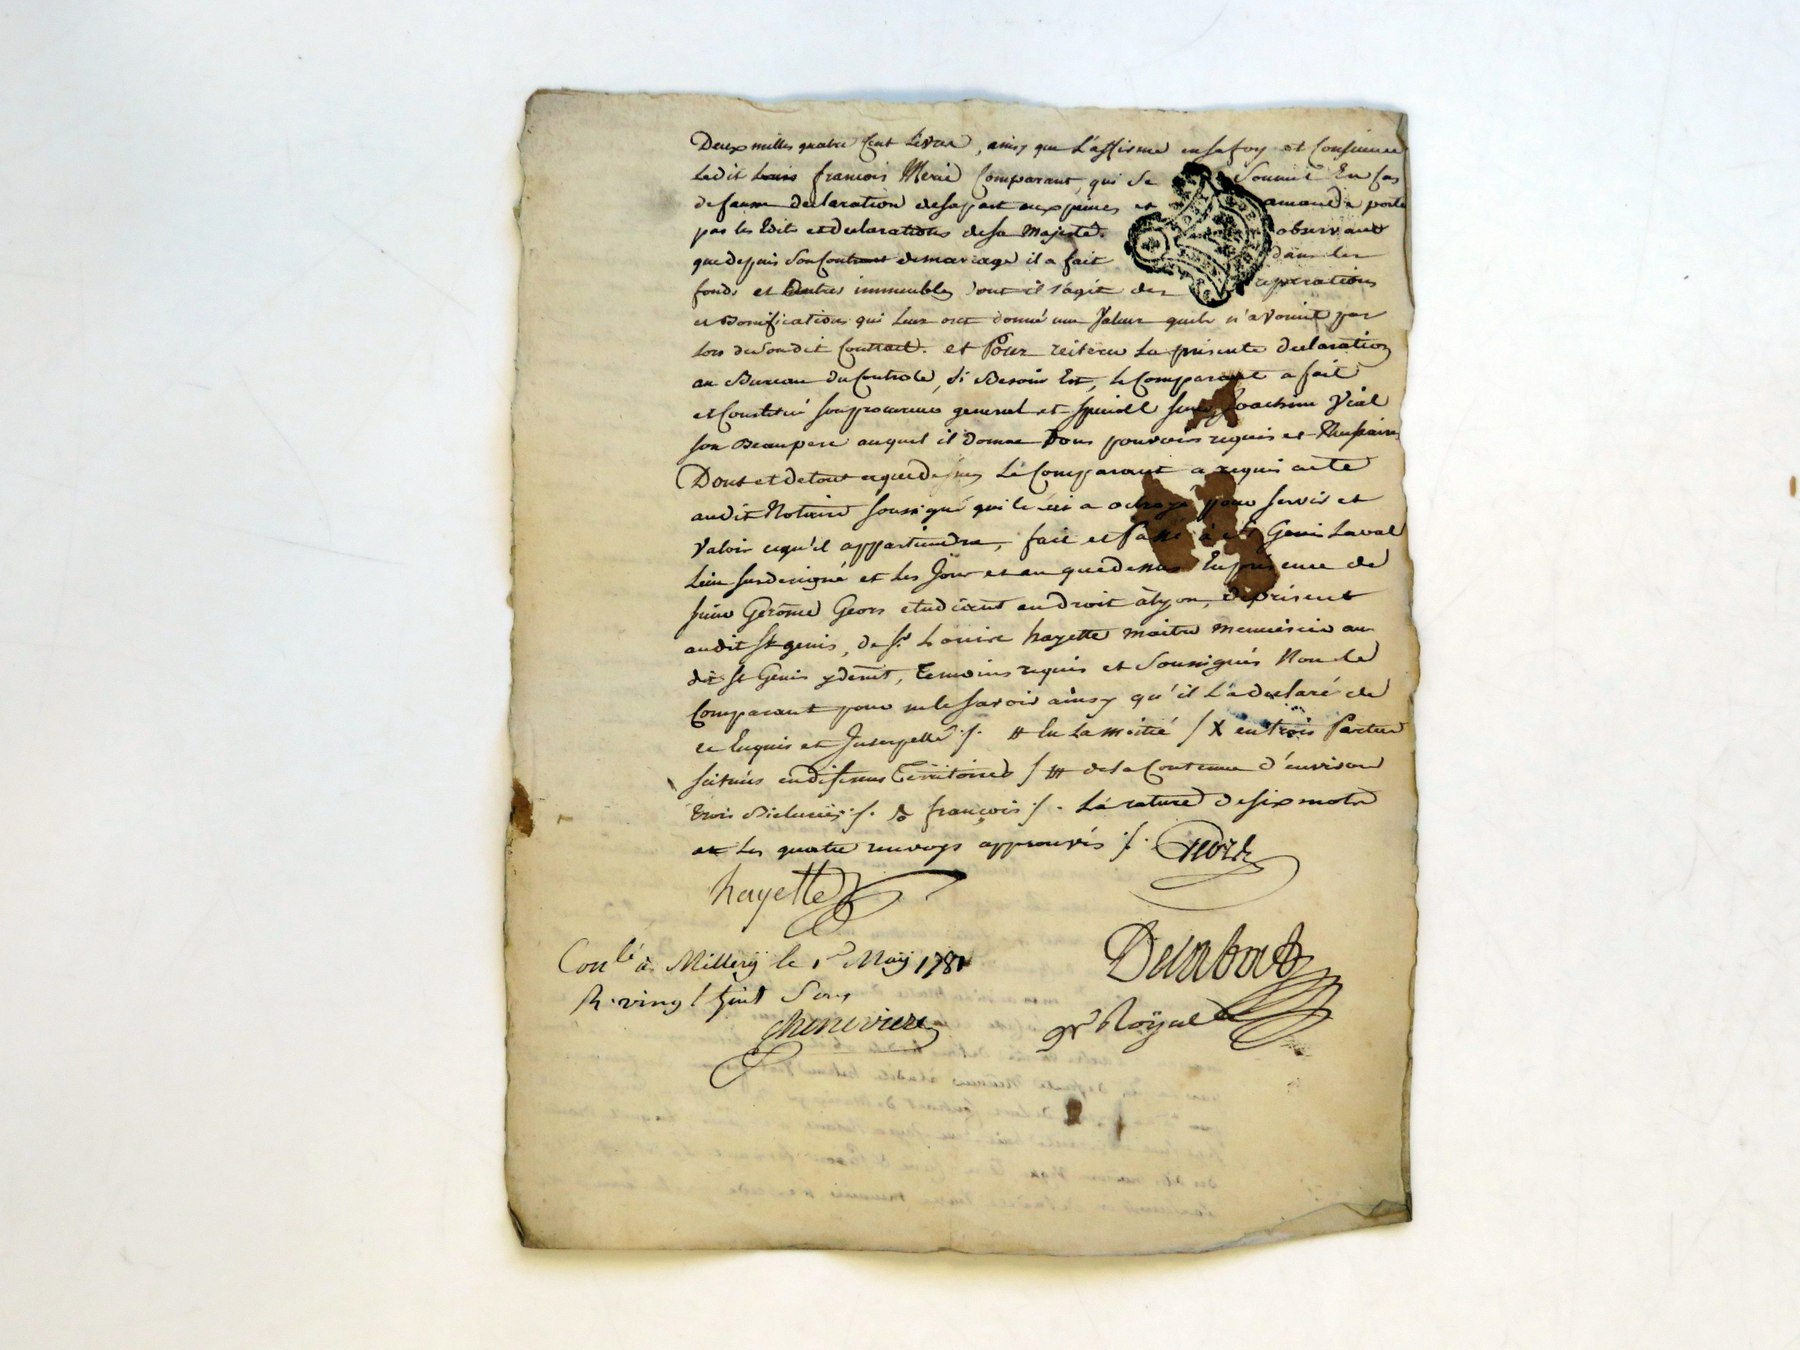 Deux milles quatre Cent Livres, ainsy que L'affirme en sa foy et Consience
Ledit Louis francois Merié Comparant, qui se Soumet En Cas
de fausse declaration de sa part aux peines et amande porté
par les Edits et declarations de sa Majesté. observant
que depuis Son Contract de mariage il a fait dans les
fonds et autres immeubles dont il s'agit des reparations
et Bonifications qui Leur ont donné une Valeur quils n'avoint pas
Lors du Sondit Contract. et Pour reiterer La presente declaration
au Bureau du Controle, Si Besoin Est, le Comparant a fait
et Constitué son procureur general et special Joachim Vial
son Beaupere auquel il Donne Tous pouvoirs requis et
Dont et de tout ce que dessus Le Comparant a requis acte
audit Notaire soussigné qui le lui a octroyé pour servir et
Valoir ce qu'il appartiendra, fait et Passé à St Genis Laval
Lieu susdesigné et Les Jour et an que dessus En presence de
sieur Gerome Geors etudient en droit à Lyon, de présent
audit St genis, de Sr Louire hayette maitre menuisier au
dit St Genis y demt, Temoins requis et Soussignés Non le
Comparant pour ne le savoir ainsy qu'il L'a declaré de
ce Enquis et Interpellé ./. # En La moitié / X en trois Parties
scitués en differens Territoires / ## de la Contenue d'environ
trois Bicherées ./. & françois /. La rature de six mots
et Les quatre renvoys approuvés ./.
hayette
Conlé à Millery le 1er May 1781
R. vingt Sous
cheneviere
nre Royal